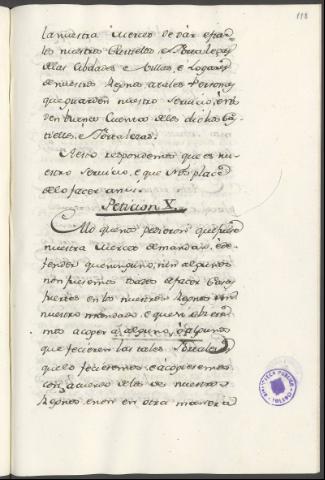 118
la nuestra merced de dar e fiar
los nuestros Castillos, e Fortalezas
de las Cibdades e Villas, e Logares
de nuestros Regnos a tales Personas
que guarden nuestro servicio, e nos
den buena Cuenta de los dichos Cas
tiellos, e Fortalezas.
A esto respondemos que es nu
estro servicio, e que nos place
de lo facer ansi.
Peticion X.
A lo que nos pedieron que fuese
nuestra merced de mandar, e de
fender que ninguno, nin algunos
non fuesen osados de facer Casas
fuertes en los nuestros Regnos sin
nuestro mandado, e que si obiere
mos a coger a alguno, o algunos
que ficieren las tales Fortalezas
que lo ficieremos, e acogieremos
con acuerdo de los de nuestros
Regnos e non en otra manera
BIBLIOTECA PUBLICA
TOLEDO